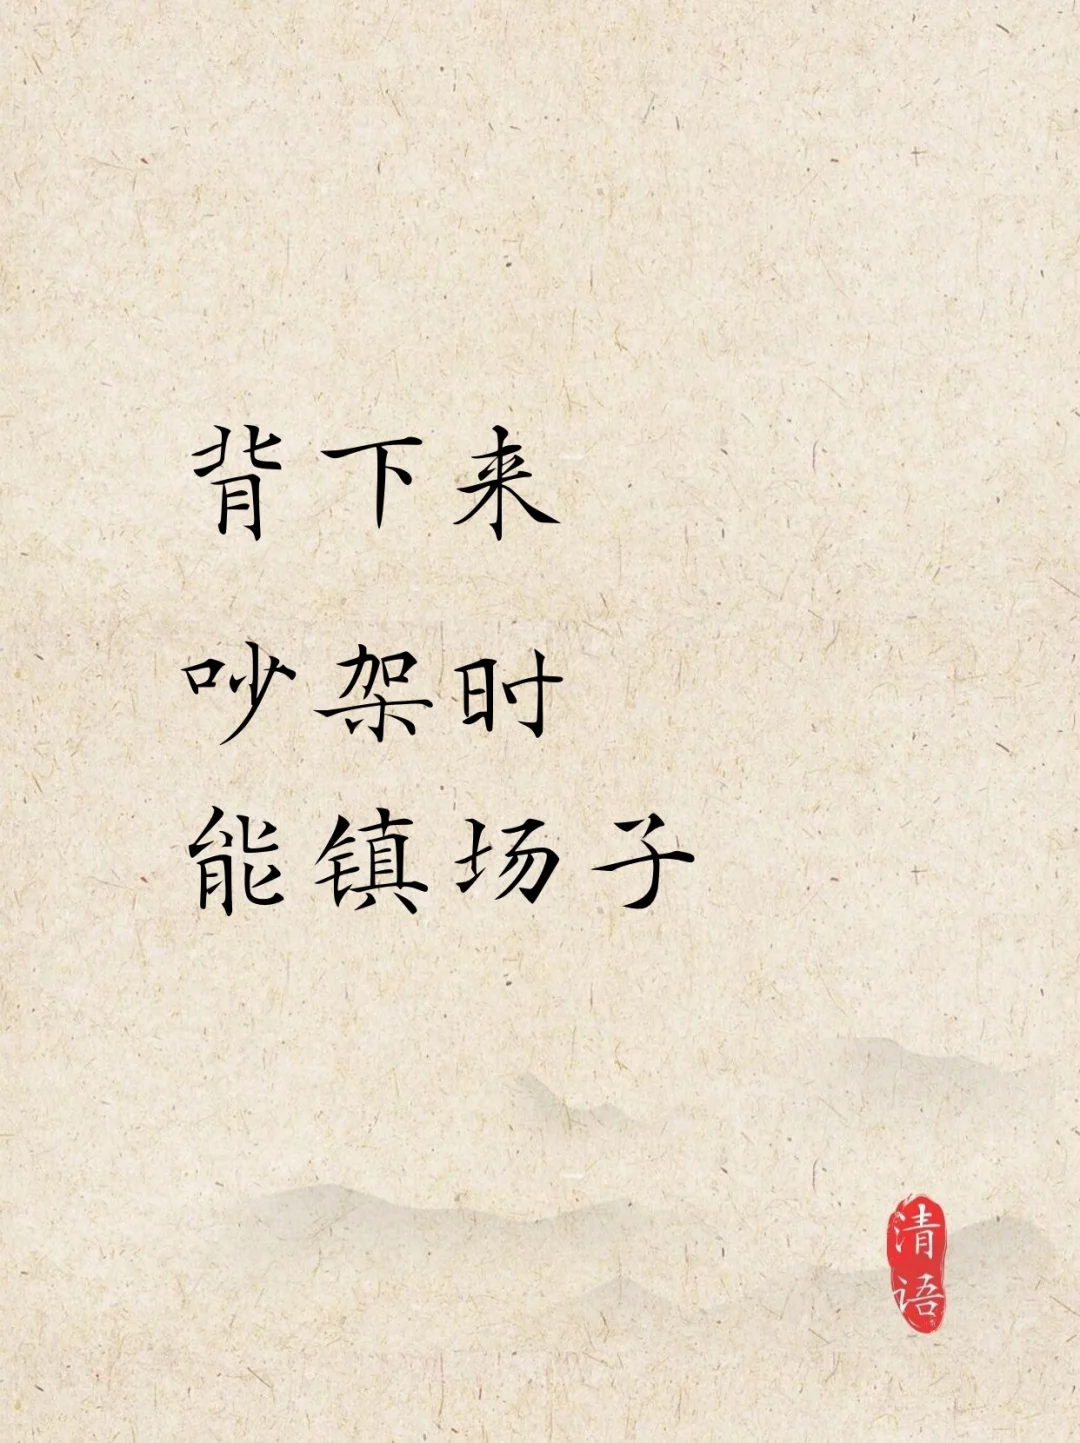 背下来
吵架时
能镇场子
清语